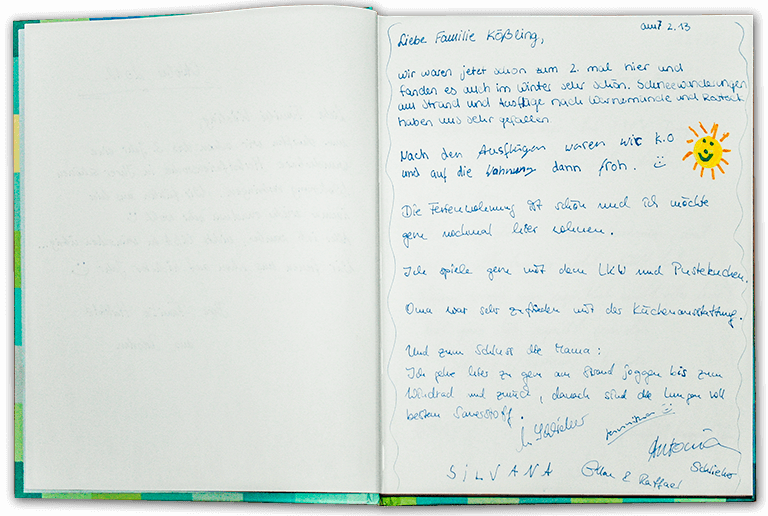 am 7 2.13
Liebe Familie Kößling,
wir waren jetzt schon zum 2. mal hier und
fanden es auch im Winter sehr schön. Schneewanderungen
am Strand und Ausflüge nach Warnemünde und
haben uns sehr gefallen.
Nach den Ausflügen waren wir K.O
und auf die Wohnung dann froh.
Die Ferienwohnung ist schön und ich möchte
gern nochmal hier wohnen.
Ich spiele gern mit dem LKW und Pustekuchen.
Oma war sehr zufrieden mit der Küchenausstattung.
Und zum Schluss die Mama:
Ich gehe hier zu gern am Strand joggen bis zum
Windrad und zurück, danach sind die Lungen voll
besten Sauerstoff.
Antonia
SILVANA
& Raffael